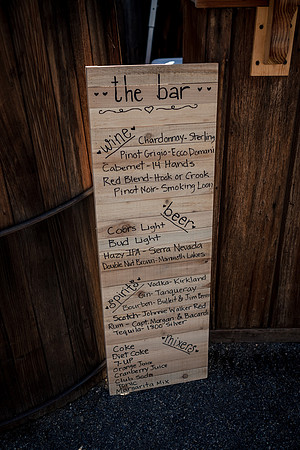 the bar
wine
Chardonnay - Sterling
Pinot Grigio - Ecco Domani
Cabernet - 14 Hands
Red Blend - Hook or Crook
Pinot Noir - Smoking Loon
beer
Coors Light
Bud Light
Hazy IPA - Sierra Nevada
Double Nut Brown - Mammoth Lakes
spirits
Vodka - Kirkland
Gin - Tanqueray
Bourbon - Bulleit & Jim Beam
Scotch - Johnnie Walker Red
Rum - Capt. Morgan & Bacardi
Tequila - 1800 Silver
mixers
Coke
Diet Coke
7-UP
Orange Juice
Cranberry Juice
Club Soda
Tonic
Margarita Mix